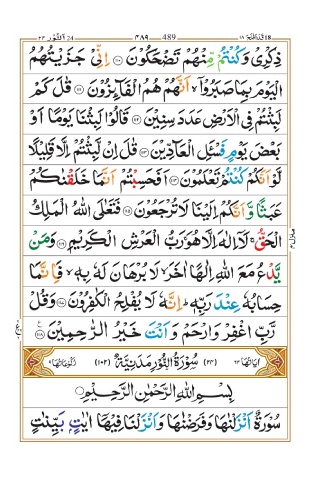 قد افلح ١٨ ٤٨٩ 489 النور ٢٤
ذِكْرِیْ وَكُنْتُمْ مِّنْهُمْ تَضْحَكُوْنَ ۝١١٠ اِنِّیْ جَزَیْتُهُمُ
الْیَوْمَ بِمَا صَبَرُوْۤا ۙ اَنَّهُمْ هُمُ الْفَآىِٕزُوْنَ ۝١١١ قٰلَ كَمْ
لَبِثْتُمْ فِی الْاَرْضِ عَدَدَ سِنِیْنَ ۝١١٢ قَالُوْا لَبِثْنَا یَوْمًا اَوْ
بَعْضَ یَوْمٍ فَسْـَٔلِ الْعَآدِّیْنَ ۝١١٣ قٰلَ اِنْ لَّبِثْتُمْ اِلَّا قَلِیْلًا
لَّوْ اَنَّكُمْ كُنْتُمْ تَعْلَمُوْنَ ۝١١٤ اَفَحَسِبْتُمْ اَنَّمَا خَلَقْنٰكُمْ
عَبَثًا وَّاَنَّكُمْ اِلَیْنَا لَا تُرْجَعُوْنَ ۝١١٥ فَتَعٰلَی اللّٰهُ الْمَلِكُ
الْحَقُّ ۚ لَاۤ اِلٰهَ اِلَّا هُوَ ۚ رَبُّ الْعَرْشِ الْكَرِیْمِ ۝١١٦ وَمَنْ
یَّدْعُ مَعَ اللّٰهِ اِلٰهًا اٰخَرَ ۙ لَا بُرْهَانَ لَهٗ بِهٖ ۙ فَاِنَّمَا
حِسَابُهٗ عِنْدَ رَبِّهٖ ؕ اِنَّهٗ لَا یُفْلِحُ الْكٰفِرُوْنَ ۝١١٧ وَقُلْ
رَّبِّ اغْفِرْ وَارْحَمْ وَاَنْتَ خَیْرُ الرّٰحِمِیْنَ ۝١١٨
اٰیاتها ٦٤ (٢٤) سُوْرَةُ النُّوْرِ مَدَنِیَّةٌ (١٠٢) رکوعاتها ٩
بِسْمِ اللّٰهِ الرَّحْمٰنِ الرَّحِیْمِ
سُوْرَةٌ اَنْزَلْنٰهَا وَفَرَضْنٰهَا وَاَنْزَلْنَا فِیْهَاۤ اٰیٰتٍۭ بَیِّنٰتٍ